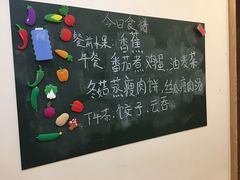 今日食谱
餐前水果:香蕉
午餐 番茄煮鸡蛋 油麦菜
冬菇蒸瘦肉饼、丝瓜瘦肉汤
下午茶:饺子、云吞